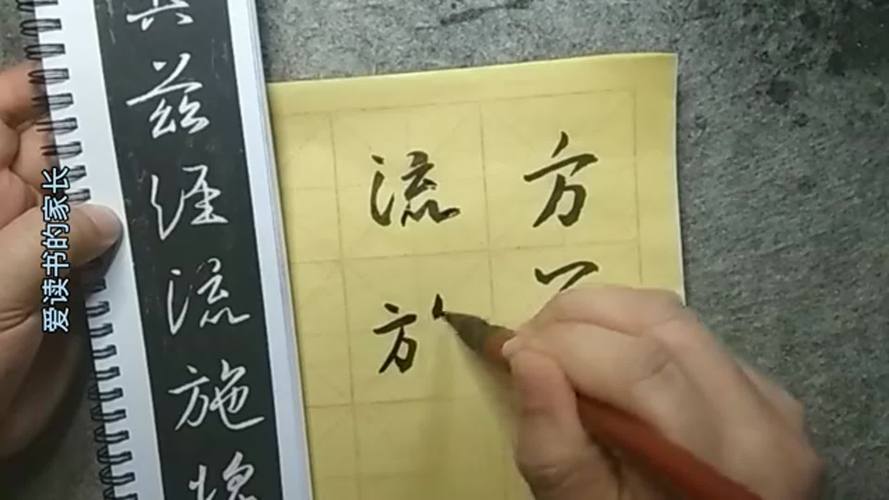 爱读书的家长
兹經流施
方
流方